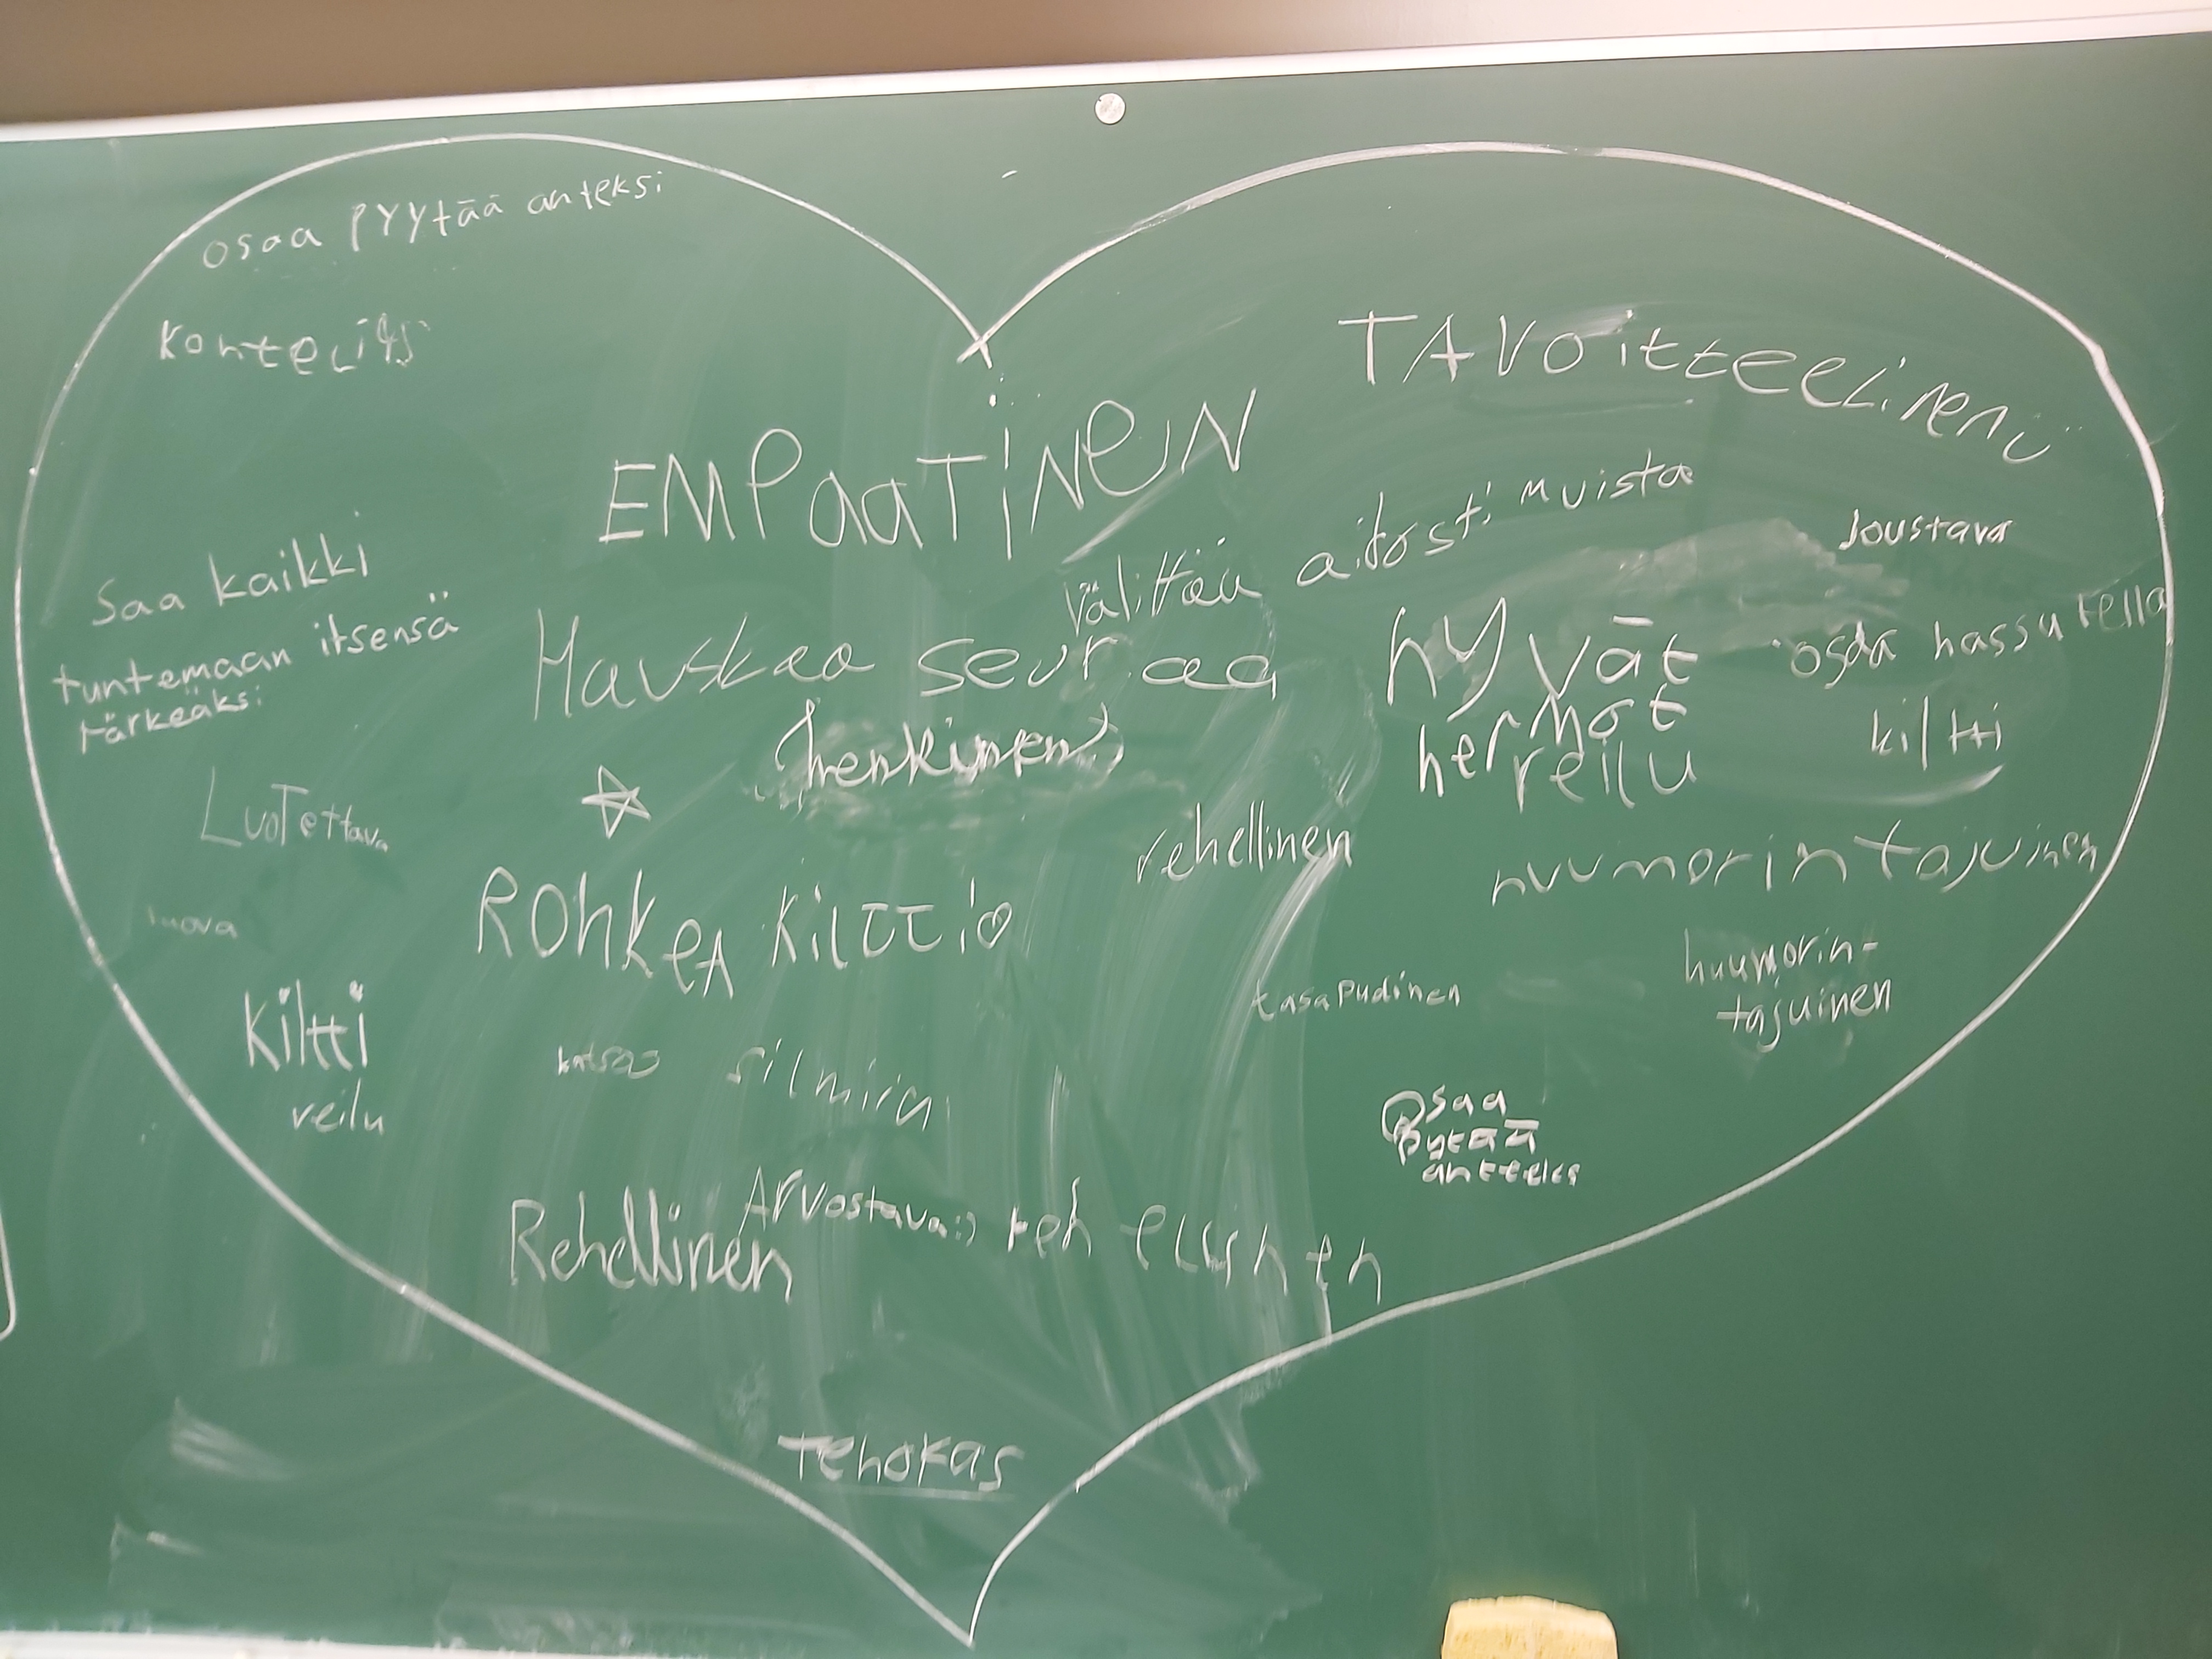 osaa pyytää anteksi
TAVoitteeLinen
EMPaaTiNeN
Välittää aidosti muista
Joustava
Saa kaikki
tuntemaan itsensä
tärkeäksi
Hauskaa seuraa
hyvät
hermot
osaa hassutella
(henkinen)
reilu
kiltti
LuoTettava
rehellinen
huumorintajuinen
ROhkeA KiLTTi
luova
huumorin-
tajuinen
kiltti
reilu
katsoo silmiin
Osaa
pytää
Arvostava :)
Rehellinen
rehellinen
tehokas